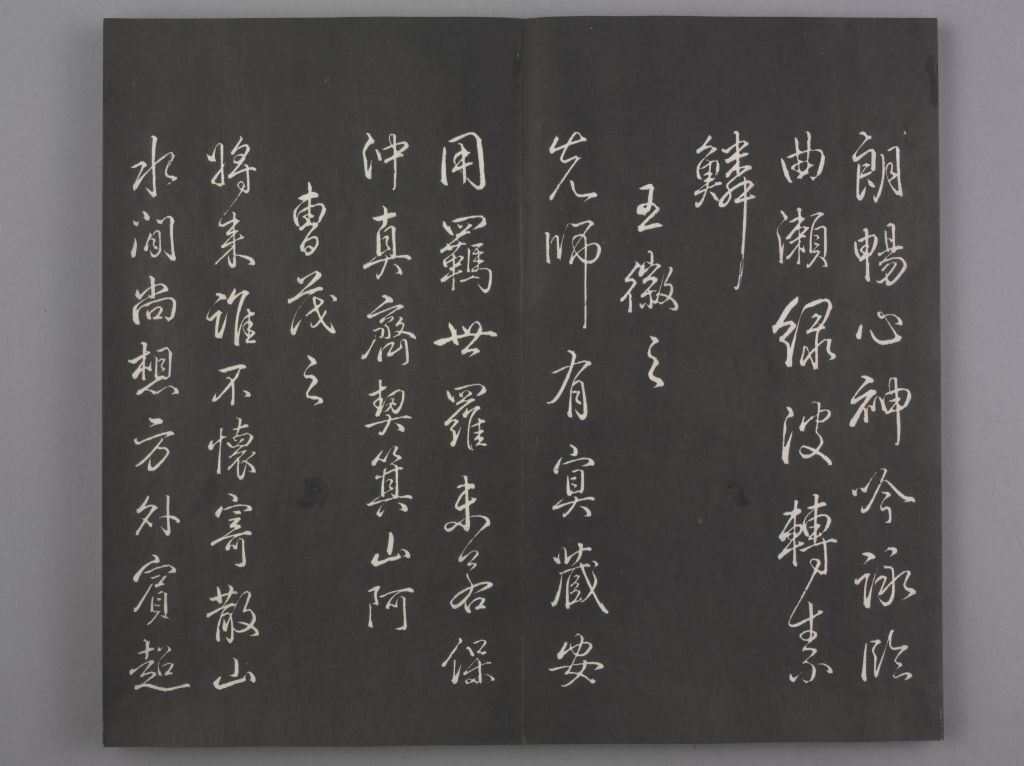 朗暢心神吟詠臨
曲瀨綠波轉素
鱗
王徽之
先師有寘藏安
用羈世羅未若保
沖真齊契箕山阿
曹茂之
將來誰不懷寄散山
水間尚想方外賓超